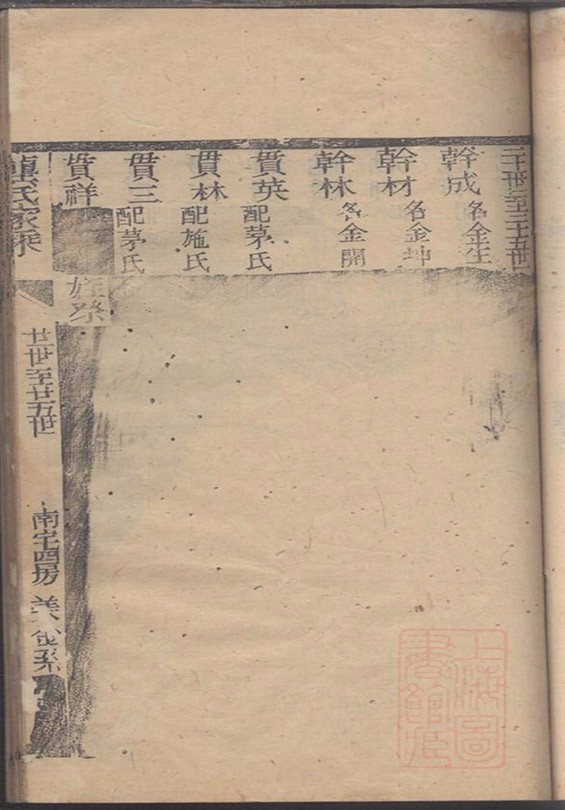 二十一世至二十五世
幹成 名金生
幹材 名金坤
幹林 名金開
貫英 配茅氏
貫林 配施氏
貫三 配茅氏
貫祥
姪系
氏家乘
廿一世至廿五世
南宅四房 美金系
上海圖書館藏